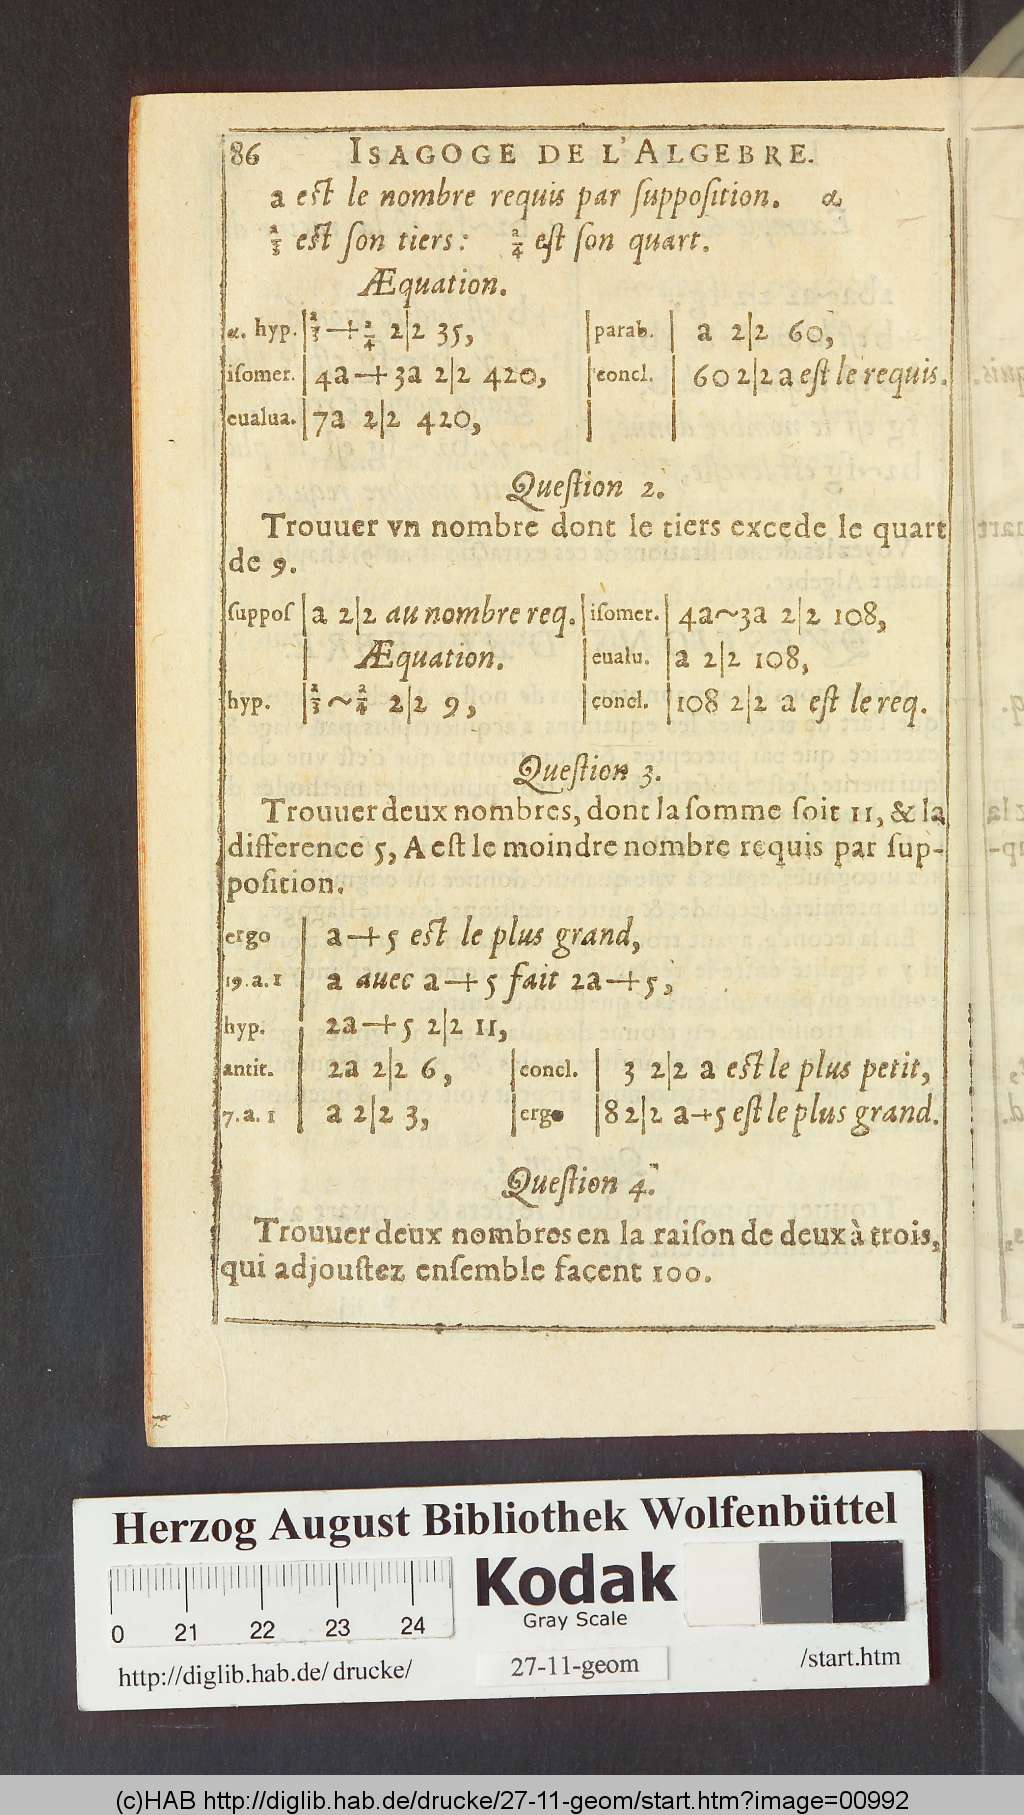 86 ISAGOGE DE L'ALGEBRE.
a est le nombre requis par ſuppoſition. α
a/3 est ſon tiers: a/4 eſt ſon quart.
Æquation.
α. hyp. | a/3 + a/4 2|2 35, | parab. | a 2|2 60,
iſomer. | 4a + 3a 2|2 420, | concl. | 60 2|2 a eſt le requis.
eualua. | 7a 2|2 420,
Queſtion 2.
Trouuer vn nombre dont le tiers excede le quart
de 9.
ſuppoſ | a 2|2 au nombre req. | iſomer. | 4a ~ 3a 2|2 108,
Æquation. | eualu. | a 2|2 108,
hyp. | a/3 ~ a/4 2|2 9, | concl. | 108 2|2 a eſt le req.
Queſtion 3.
Trouuer deux nombres, dont la ſomme ſoit 11, & la
difference 5, A eſt le moindre nombre requis par ſup-
poſition.
ergo | a + 5 eſt le plus grand,
19. a. 1 | a auec a + 5 fait 2a + 5,
hyp. | 2a + 5 2|2 11,
antit. | 2a 2|2 6, | concl. | 3 2|2 a eſt le plus petit,
7. a. 1 | a 2|2 3, | ergo | 8 2|2 a + 5 eſt le plus grand.
Queſtion 4.
Trouuer deux nombres en la raiſon de deux à trois,
qui adjouſtez enſemble facent 100.
Herzog August Bibliothek Wolfenbüttel
Kodak
Gray Scale
0 21 22 23 24
http://diglib.hab.de/drucke/ 27-11-geom /start.htm
(c)HAB http://diglib.hab.de/drucke/27-11-geom/start.htm?image=00992